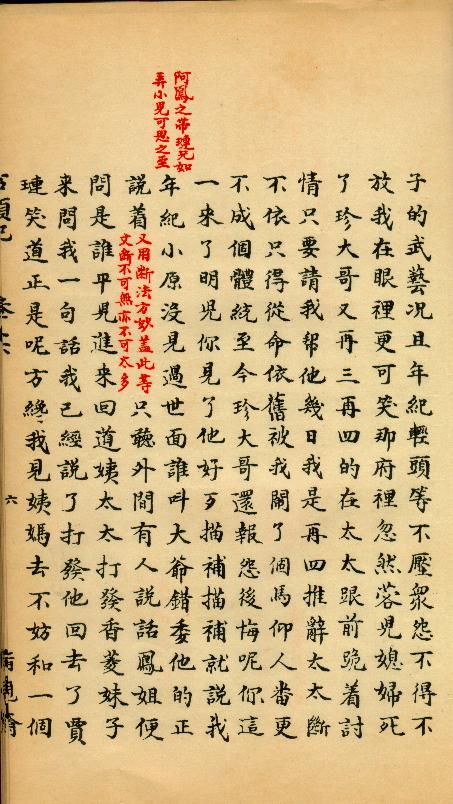 阿鳳之帶璉兄如
弄小兒可思之至
子的武藝况且年紀輕頭等不壓衆怨不得不
放我在眼裡更可笑那府裡忽然蓉兒媳婦死
了珍大哥又再三再四的在太太跟前跪着討
情只要請我帮他幾日我是再四推辭太太斷
不依只得從命依舊被我鬧了個馬仰人畨更
不成個體統至今珍大哥還報怨後悔呢你這
一來了明兒你見了他好歹描補描補就說我
年紀小原没見過世面誰叫大爺錯委他的正
說着
又用断法方妙盖此等
文断不可無亦不可太多
只聽外間有人說話鳳姐便
問是誰平兒進來回道姨太太打發香菱妹子
來問我一句話我已經說了打發他回去了賈
璉笑道正是呢方纔我見姨媽去不妨和一個
六